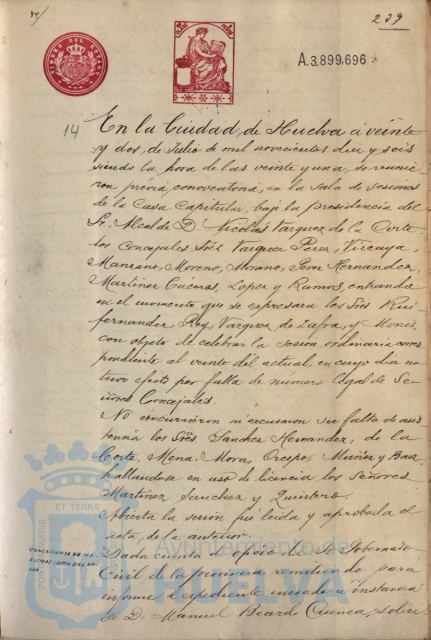 239
A.3,899,696
14
En la Ciudad de Huelva á veinte
y dos de Julio de mil novecientos diez y seis
siendo la hora de las veinte y una, se reunie-
ron prévia convocatoria, en la Sala de sesiones
de la Casa Capitular, bajo la presidencia del
Sr. Alcalde D. Nicolás Vazquez de la Corte
los Concejales Sres Vazquez Perez, Vizcaya,
Manzano, Moreno, Moreno, Hernandez,
Martinez Lopez y Ramos, entrando
en el momento que se expresará los Sres Rui-
fernandez, Rey, Vazquez de Zafra, y Mones,
con objeto de celebrar la sesión ordinaria corres-
pondiente al veinte del actual, en cuyo dia no
tuvo efecto por falta de número legal de Se-
ñores Concejales.
No concurrieron ni excusaron su falta de asis-
tencia los Sres Sanchez Hernandez, de la
Corte, Mena, Mora, Muñoz y Baez,
hallandose en uso de licencia los Señores
Martinez Sanchez y Quintero.
Abierta la sesión fué leida y aprobada el
acta de la anterior.
Dada cuenta de oficio del Sr. Goberna-
Civil de la provincia remitiendo para
informe el espediente incoado a instancia
de D. Manuel Cuenca, solici-
ET TERRÆ
PORTUS MARIS
Ayuntamiento de
HUELVA